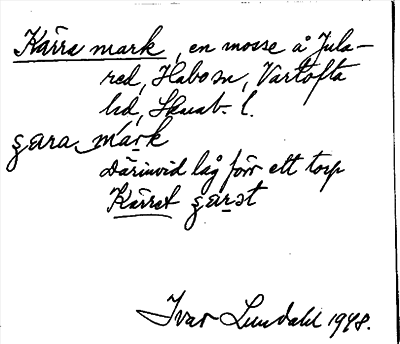 Kärra mark, en mosse å Jula-
red, Habo sn, Vartofta
hd, Skarab. l.
ʂæra mark
Därinvid låg förr ett torp
Kärret ʂærət
Ivar Lundahl 1948.